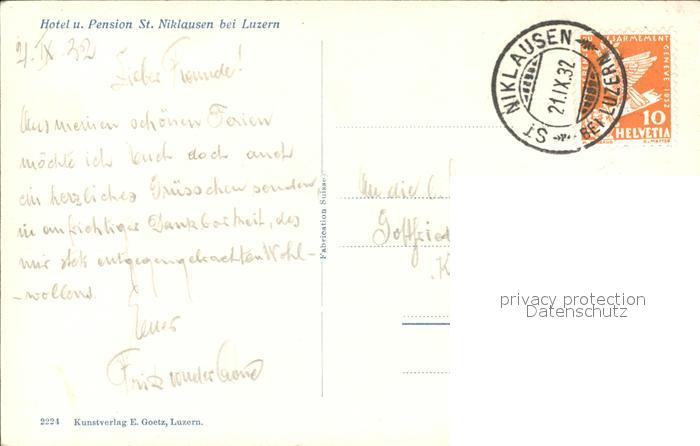 Hotel u. Pension St. Niklausen bei Luzern
21. IX 32
Lieber Freunde!
Aus meinen schönen Ferien
möchte ich Euch doch auch
ein herzliches Grüsschen senden
in aufrichtiger Dankbarkeit, des
mir stets entgegengebrachten Wohl-
-wollens.
Euer
Fritz
An die
Gottfried
K
Fabrication Suisse
ST NIKLAUSEN
BEI LUZERN
21.IX.32
DESARMEMENT
GENEVE 1932
10
HELVETIA
privacy protection
Datenschutz
2224 Kunstverlag E. Goetz, Luzern.